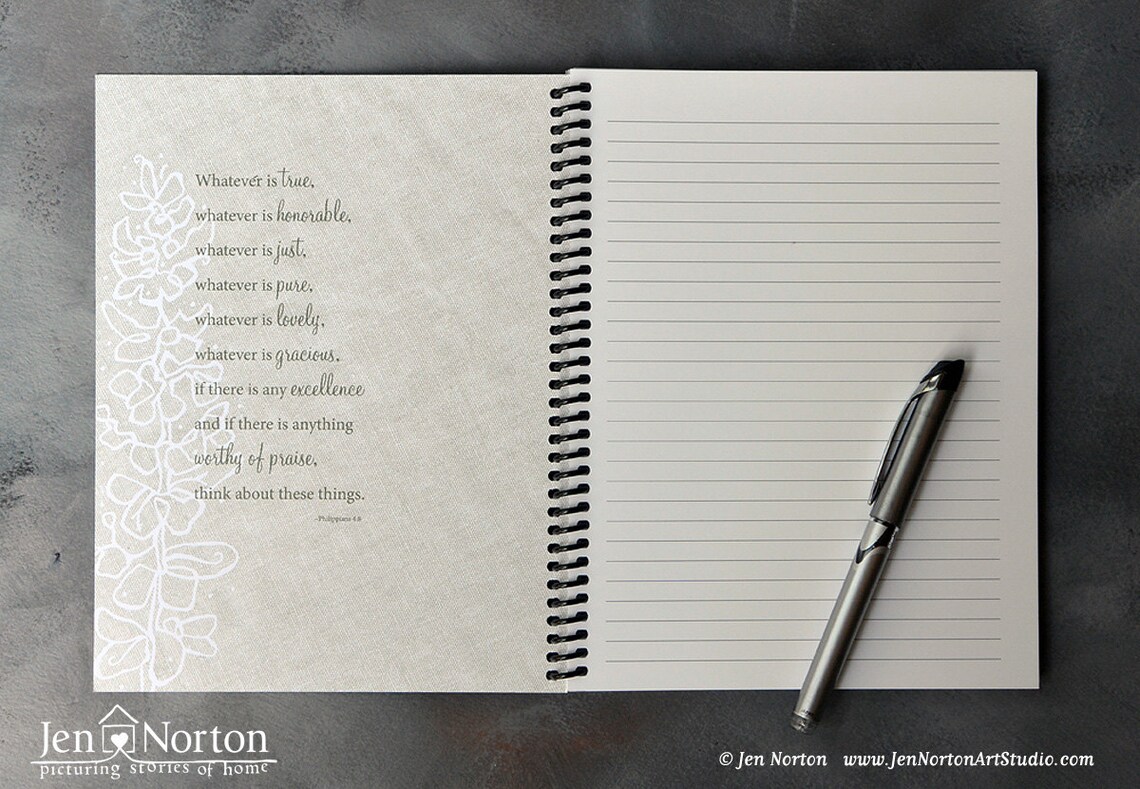 Whatever is true,
whatever is honorable,
whatever is just,
whatever is pure,
whatever is lovely,
whatever is gracious,
if there is any excellence
and if there is anything
worthy of praise,
think about these things.
~Philippians 4:8
Jen Norton
picturing stories of home
© Jen Norton www.JenNortonArtStudio.com